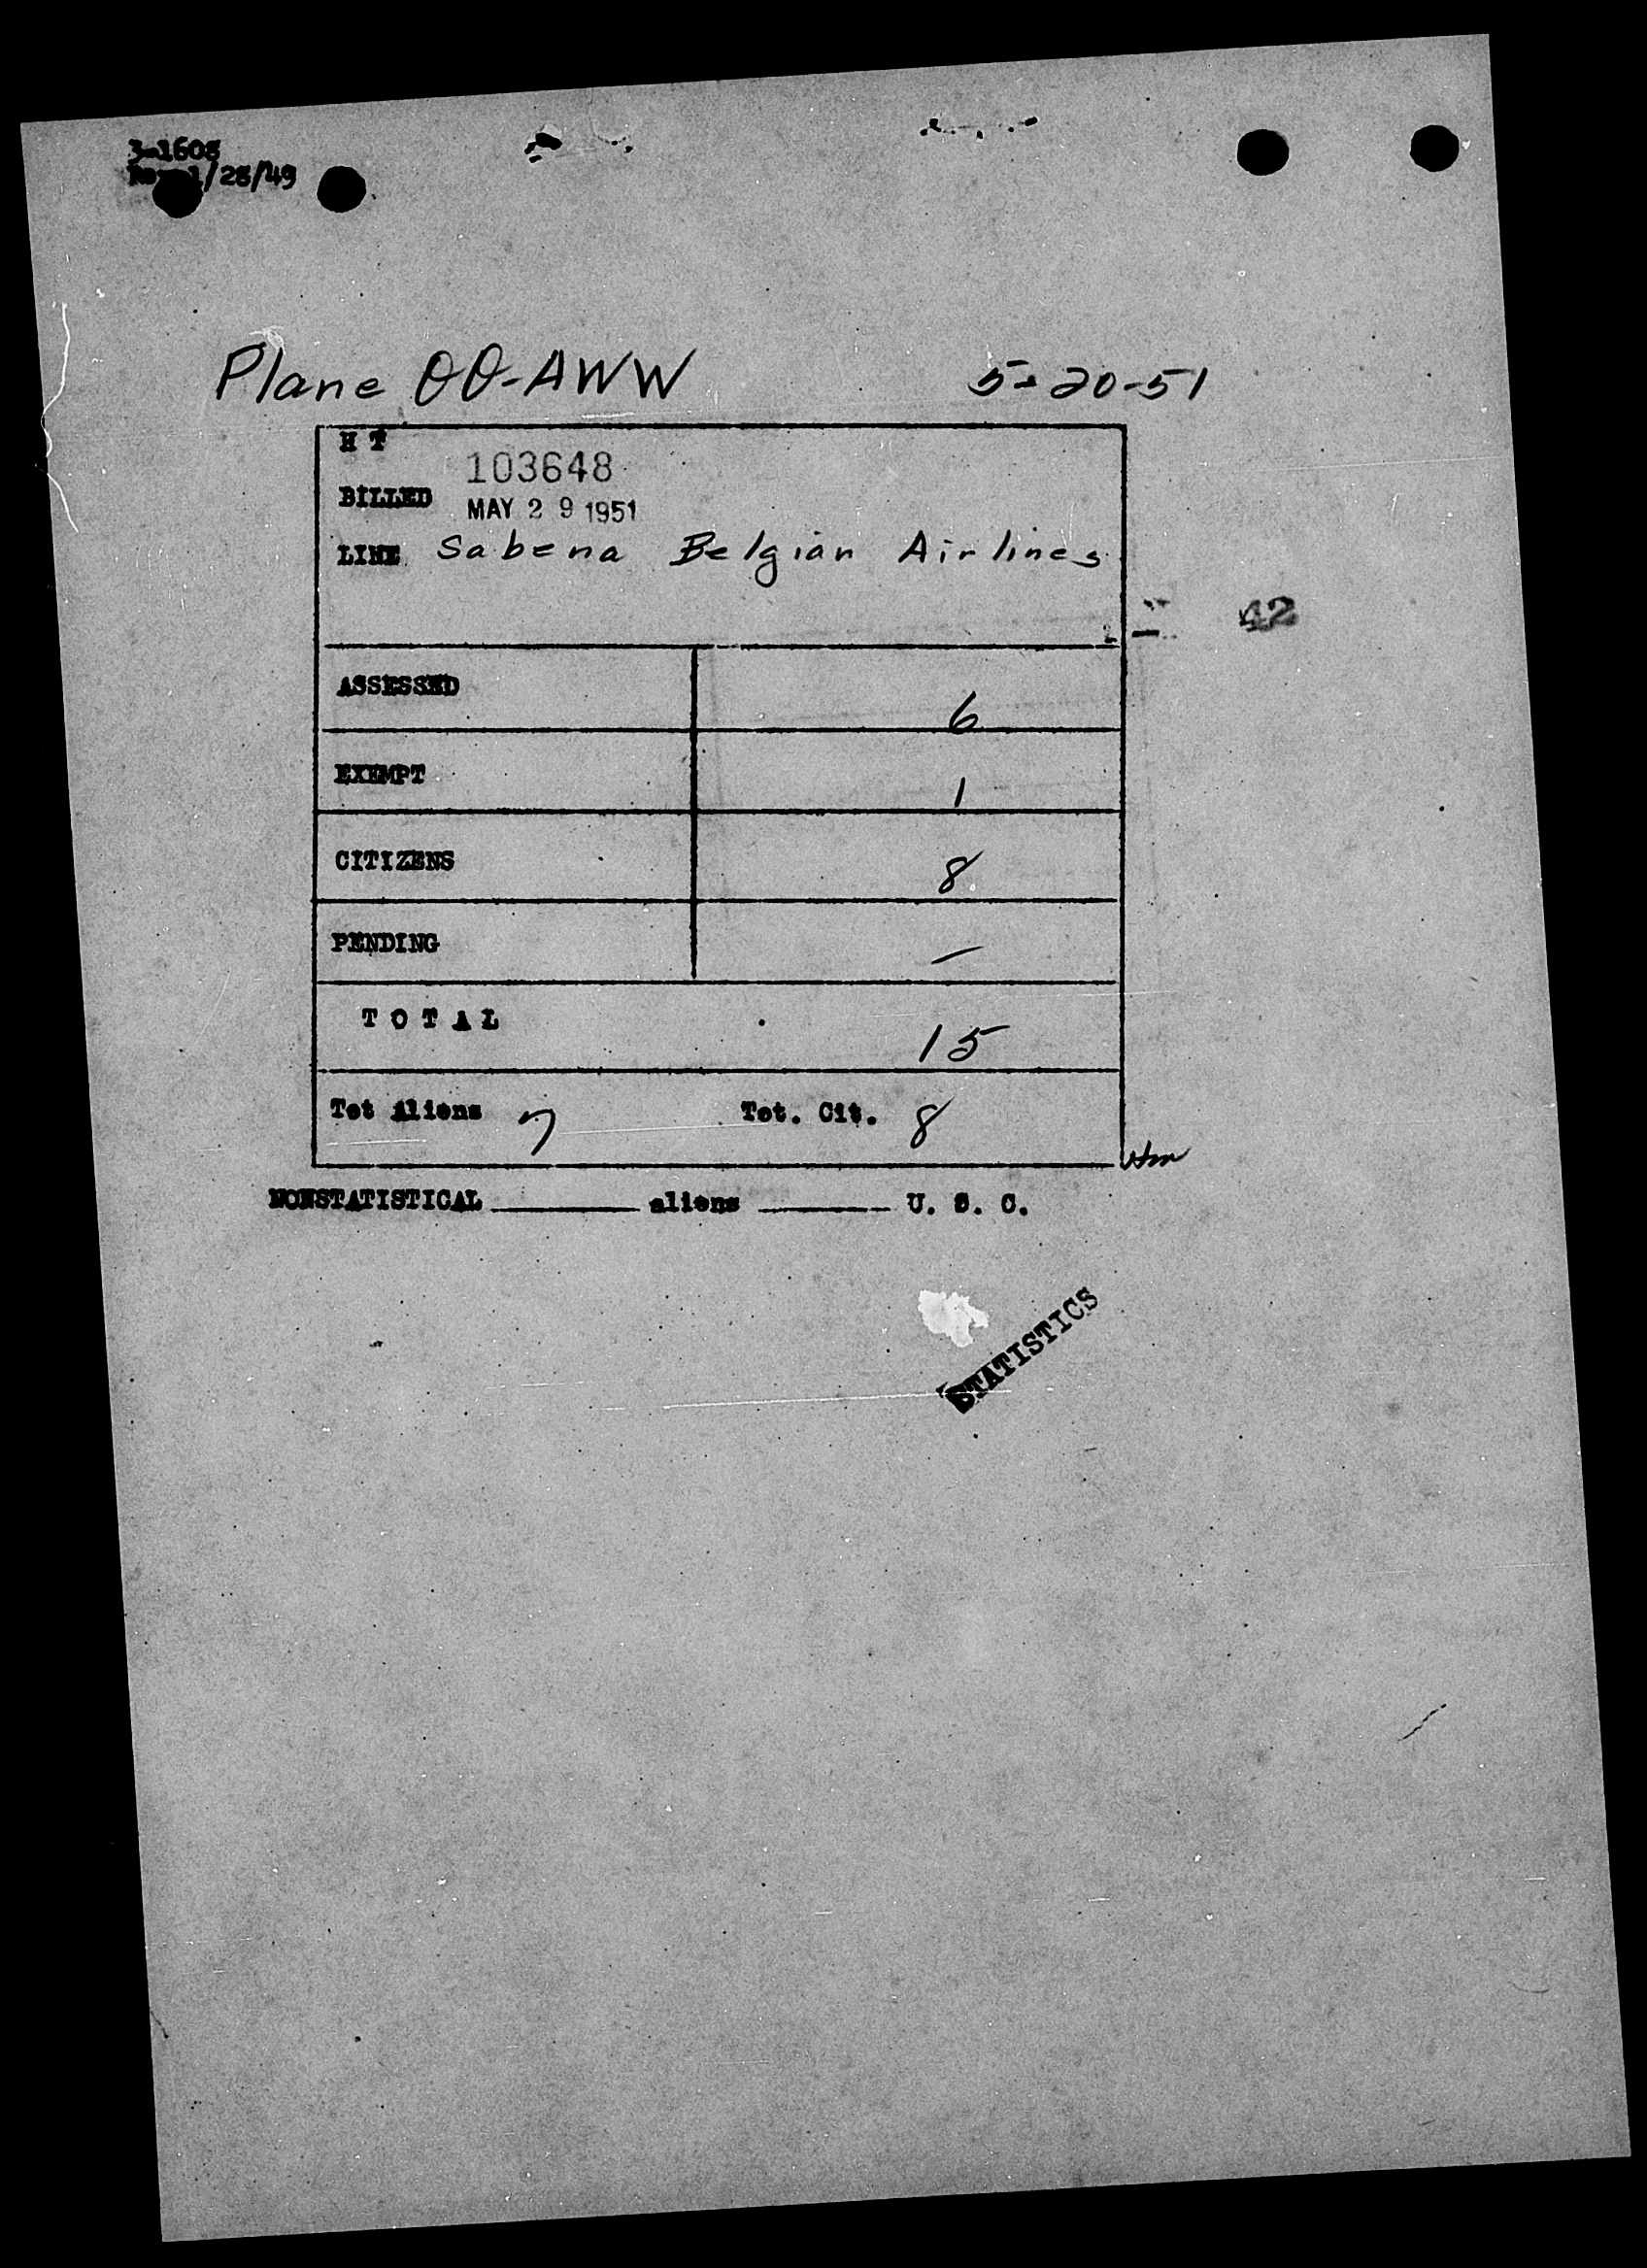 3-1608
1/28/49
Plane OO-AWW 5-20-51
H T
103648
BILLED MAY 29 1951
LINE Sabena Belgian Airlines
42
ASSESSED 6
EXEMPT 1
CITIZENS 8
PENDING —
TOTAL 15
Tot Aliens 7 Tot. Cit. 8
NONSTATISTICAL ______ aliens ______ U. S. C.
STATISTICS